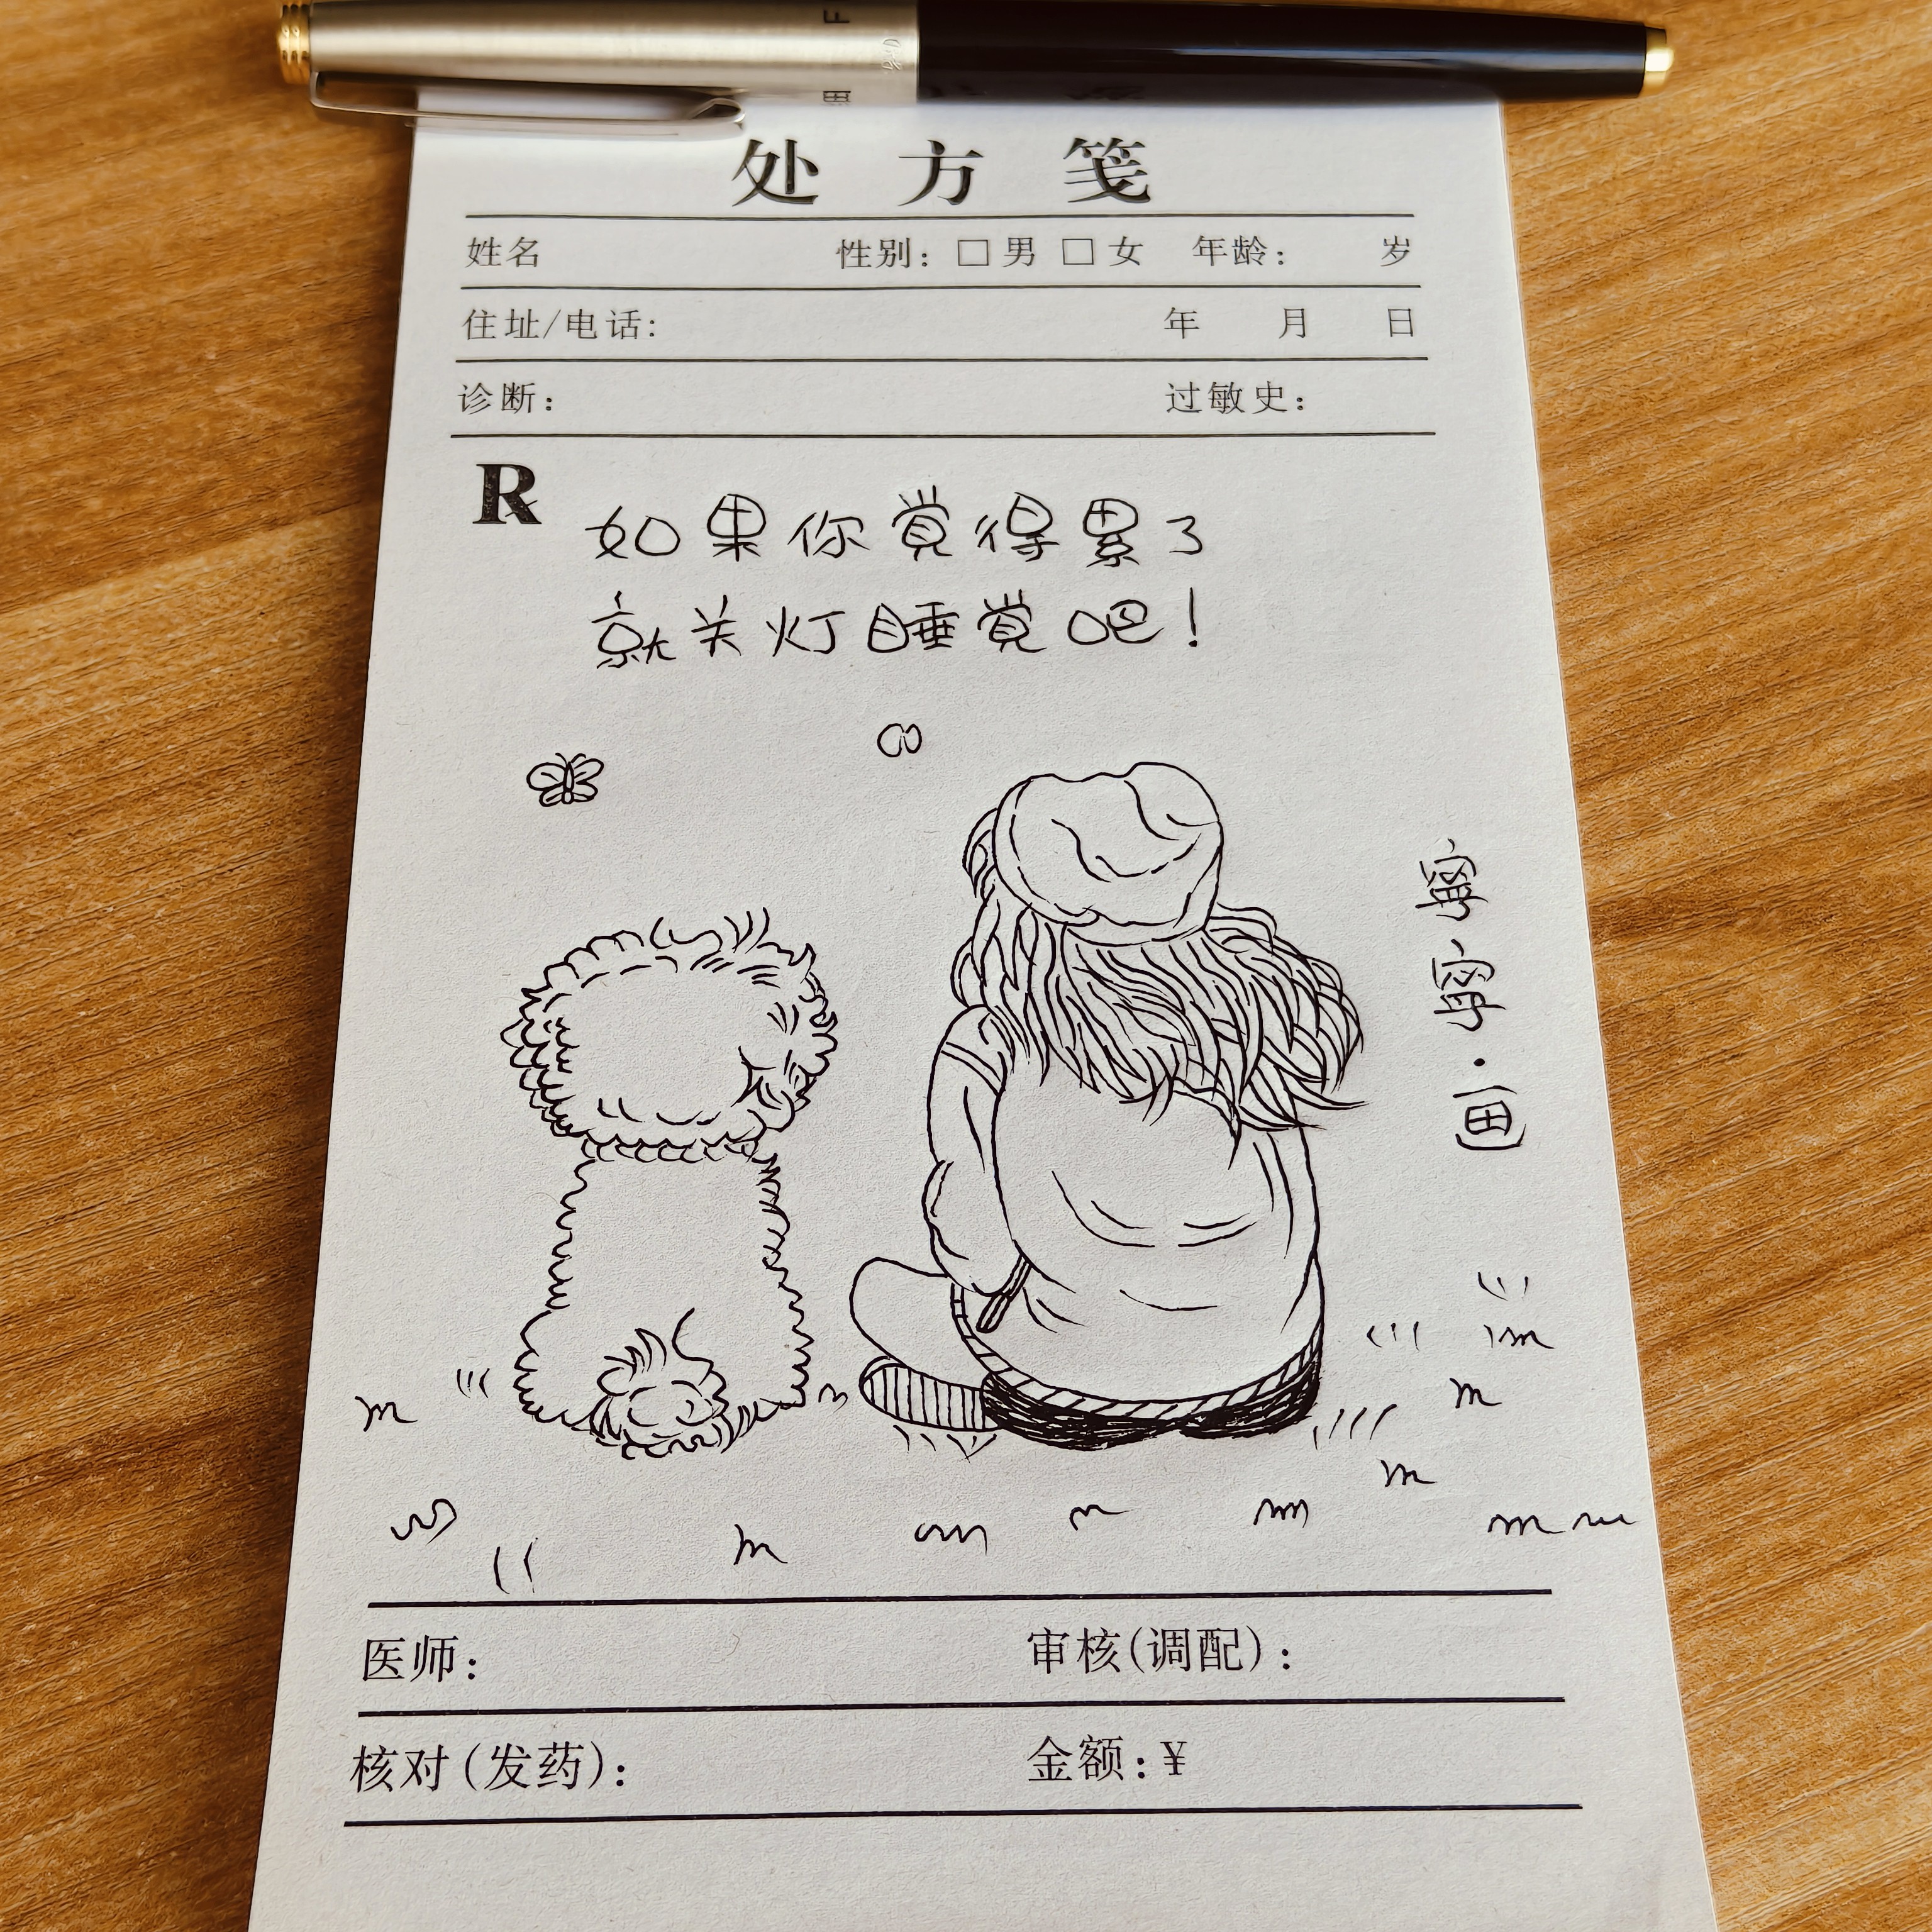 细 F
处方笺
姓名 性别：□男 □女 年龄： 岁
住址/电话： 年 月 日
诊断： 过敏史：
R
如果你覚得累了
就关灯睡覚吧！
寧寧·画
医师： 审核(调配)：
核对(发药)： 金额：¥